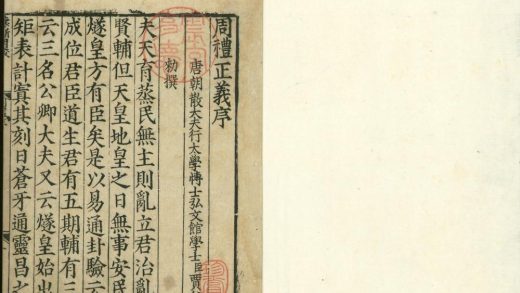 周禮正義序
唐朝散大夫行太學博士弘文館學士臣賈
勑撰
夫天育蒸民無主則亂立君治亂
賢輔但天皇地皇之日無事安民
燧皇方有臣矣是以易通卦驗云
成位君臣道生君有五期輔有三
云三名公卿大夫又云燧皇始出
矩表計寘其刻日蒼牙通靈昌之